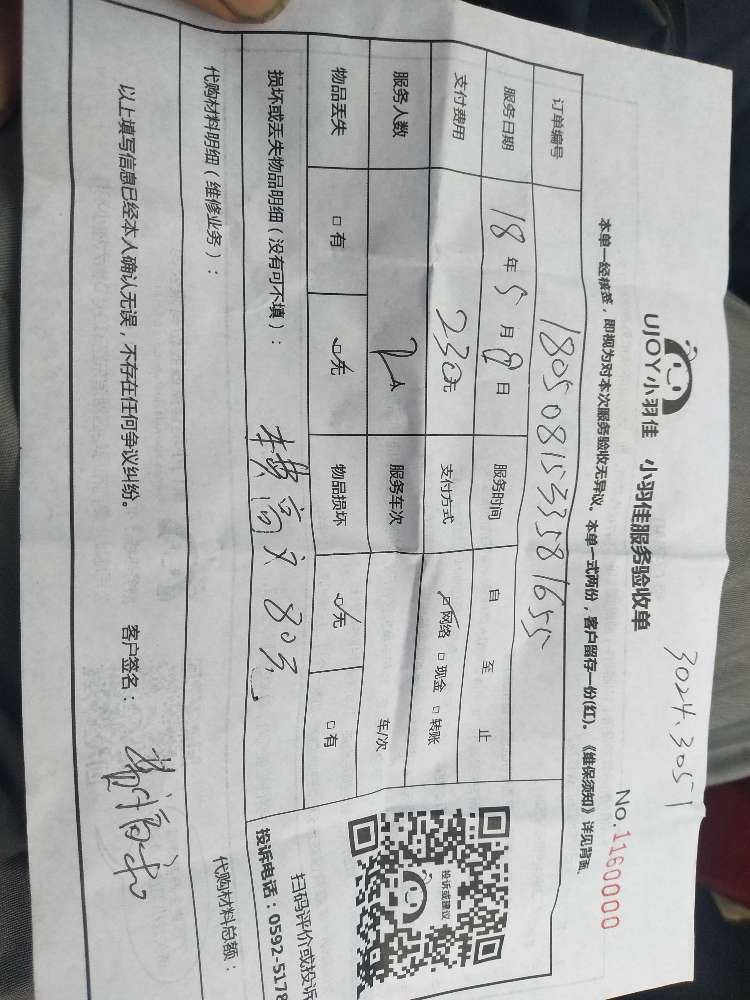 3024.3051
UJOY小羽佳 小羽佳服务验收单
No.1160000
本单一经核签，即视为对本次服务验收无异议。本单一式两份，客户留存一份(红)。《维保须知》详见背面
订单编号 180508153358 1655
服务日期 18年5月8日 服务时间 自 至 止
支付费用 230元 支付方式 ☑网络 □现金 □转账
服务人数 2人 服务车次 车/次
物品丢失 □有 ☑无 物品损坏 ☑无 □有
损坏或丢失物品明细（没有可不填）：
80元
代购材料明细（维修业务）：
代购材料总额：
以上填写信息已经本人确认无误，不存在任何争议纠纷。 客户签名：
投诉或建议
扫码评价或投诉
投诉电话：0592-5178